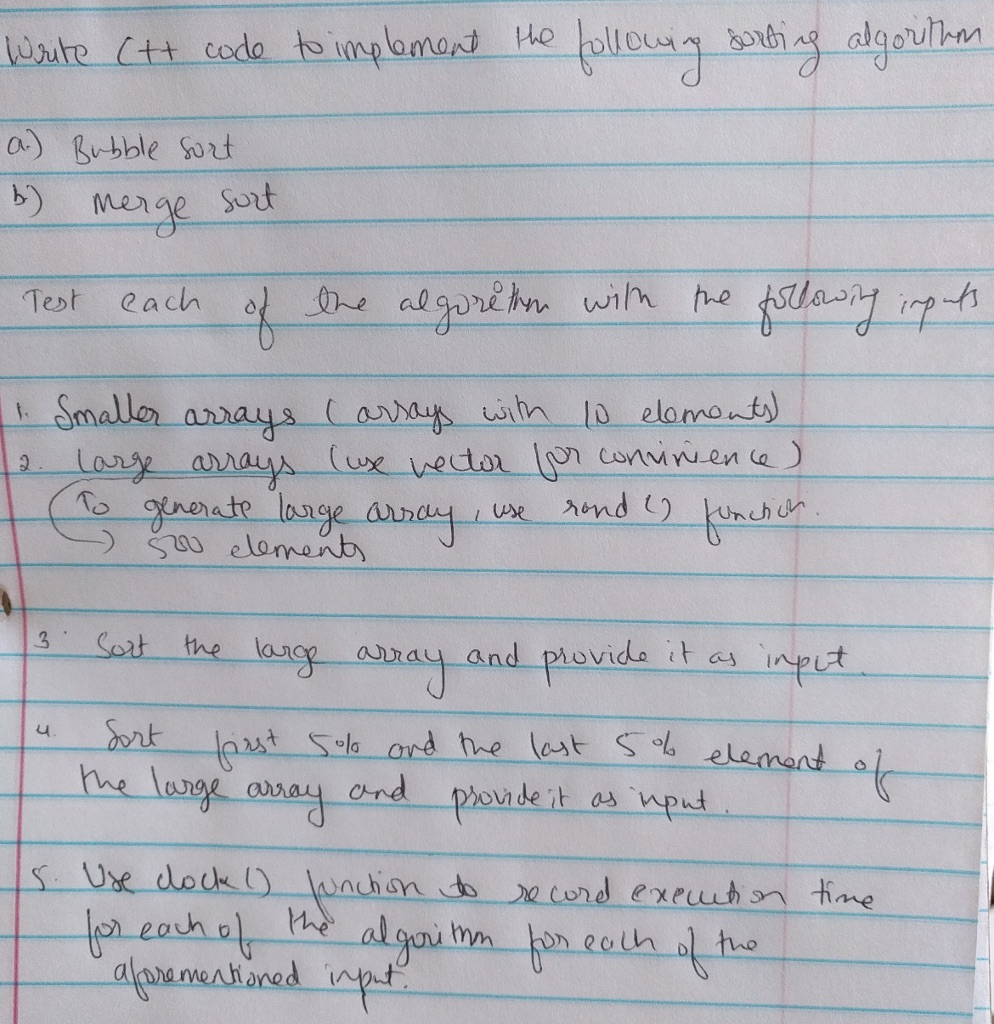 Write C++ code to implement the following sorting algorithm
a.) Bubble Sort
b) Merge Sort
Test each of the algorithm with the following inputs
1. Smaller arrays (arrays with 10 elements)
2. large arrays (use vector for convinience)
To generate large array, use rand() function.
→ 500 elements
3. Sort the large array and provide it as input
4. Sort first 5% and the last 5% element of
the large array and provide it as input.
5. Use clock() function to record execution time
for each of the algorithm for each of the
aforementioned input.